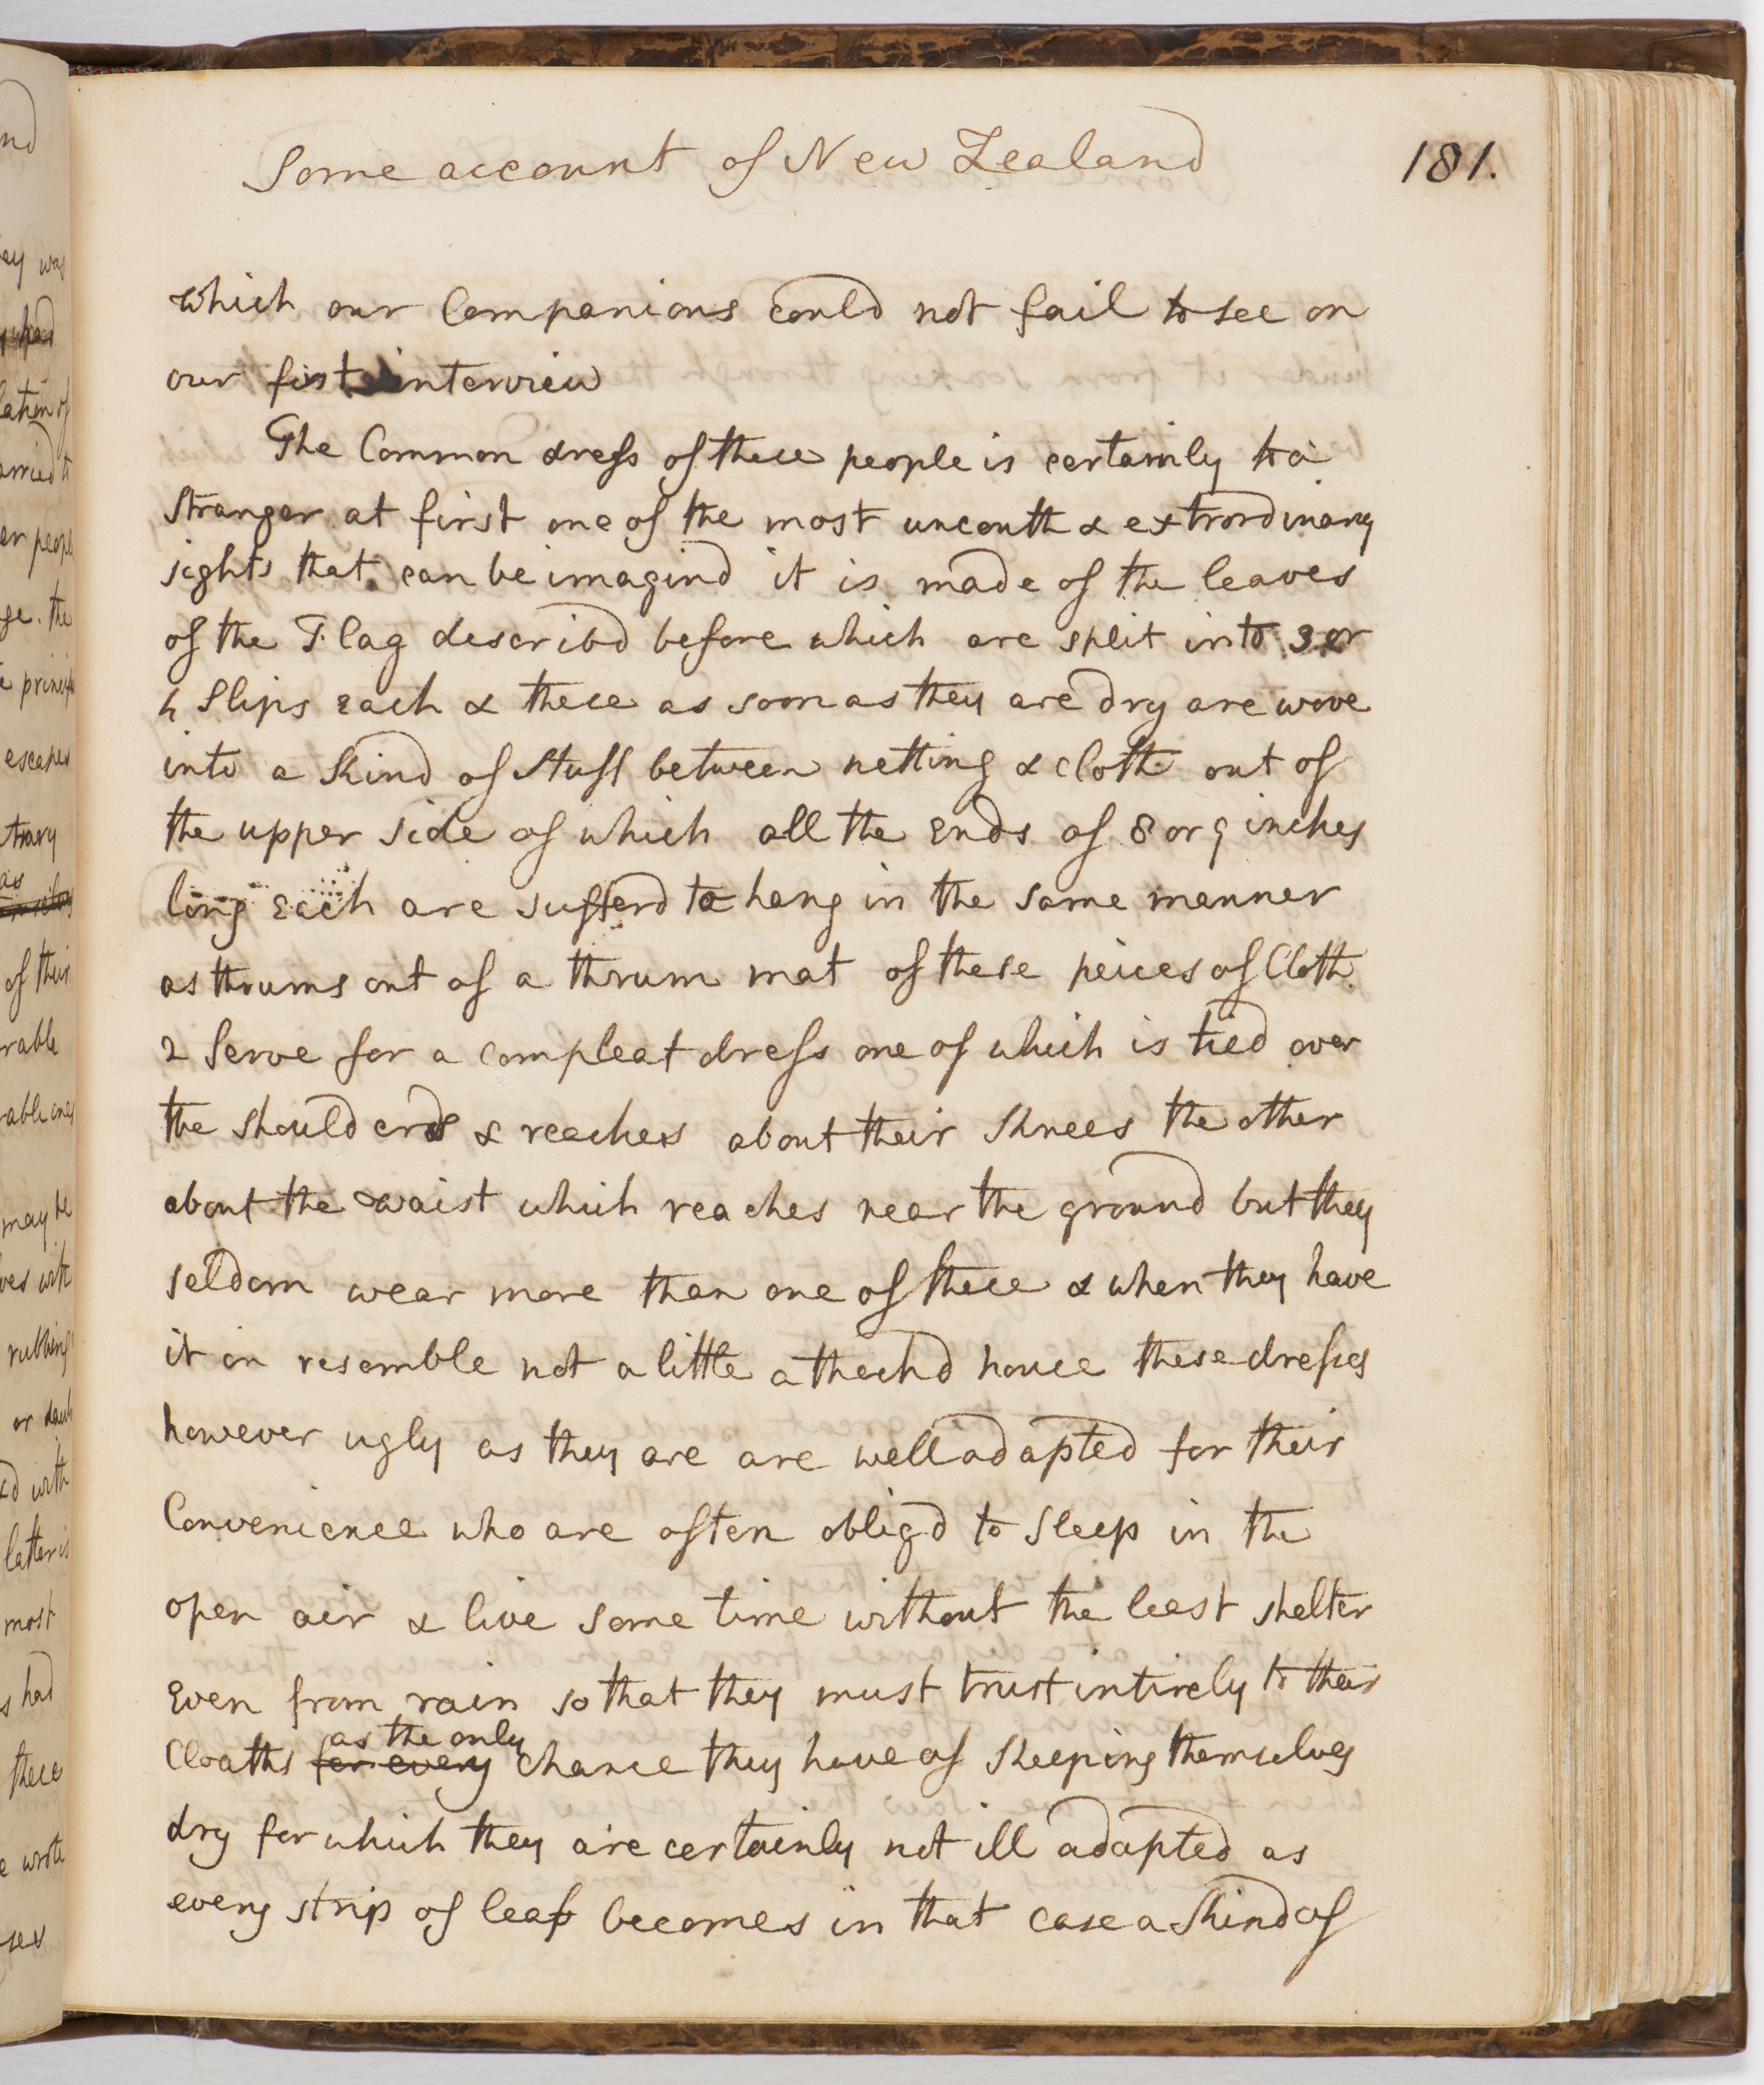 Some account of New Zealand
181.
which our Companions could not fail to see on
our first interview
The Common dress of these people is certainly to a
stranger at first one of the most uncouth & extrordinary
sights that can be imagind it is made of the leaves
of the Flag describd before which are split into 3 or
4 slips each & these as soon as they are dry are wove
into a kind of stuff between netting & cloth out of
the upper side of which all the ends of 8 or 9 inches
long each are sufferd to hang in the same manner
as thrums out of a thrum mat of these peices of Cloth
2 serve for a compleat dress one of which is tied over
the shoulders & reaches about their knees the other
about the waist which reaches near the ground but they
seldom wear more than one of these & when they have
it on resemble not a little a thachd house these dresses
however ugly as they are are well adapted for their
Convenience who are often obligd to sleep in the
open air & live some time without the least shelter
even from rain so that they must trust intirely to their
as the only
Cloaths for every chance they have of keeping themselves
dry for which they are certainly not ill adapted as
every strip of leaf becomes in that case a kind of